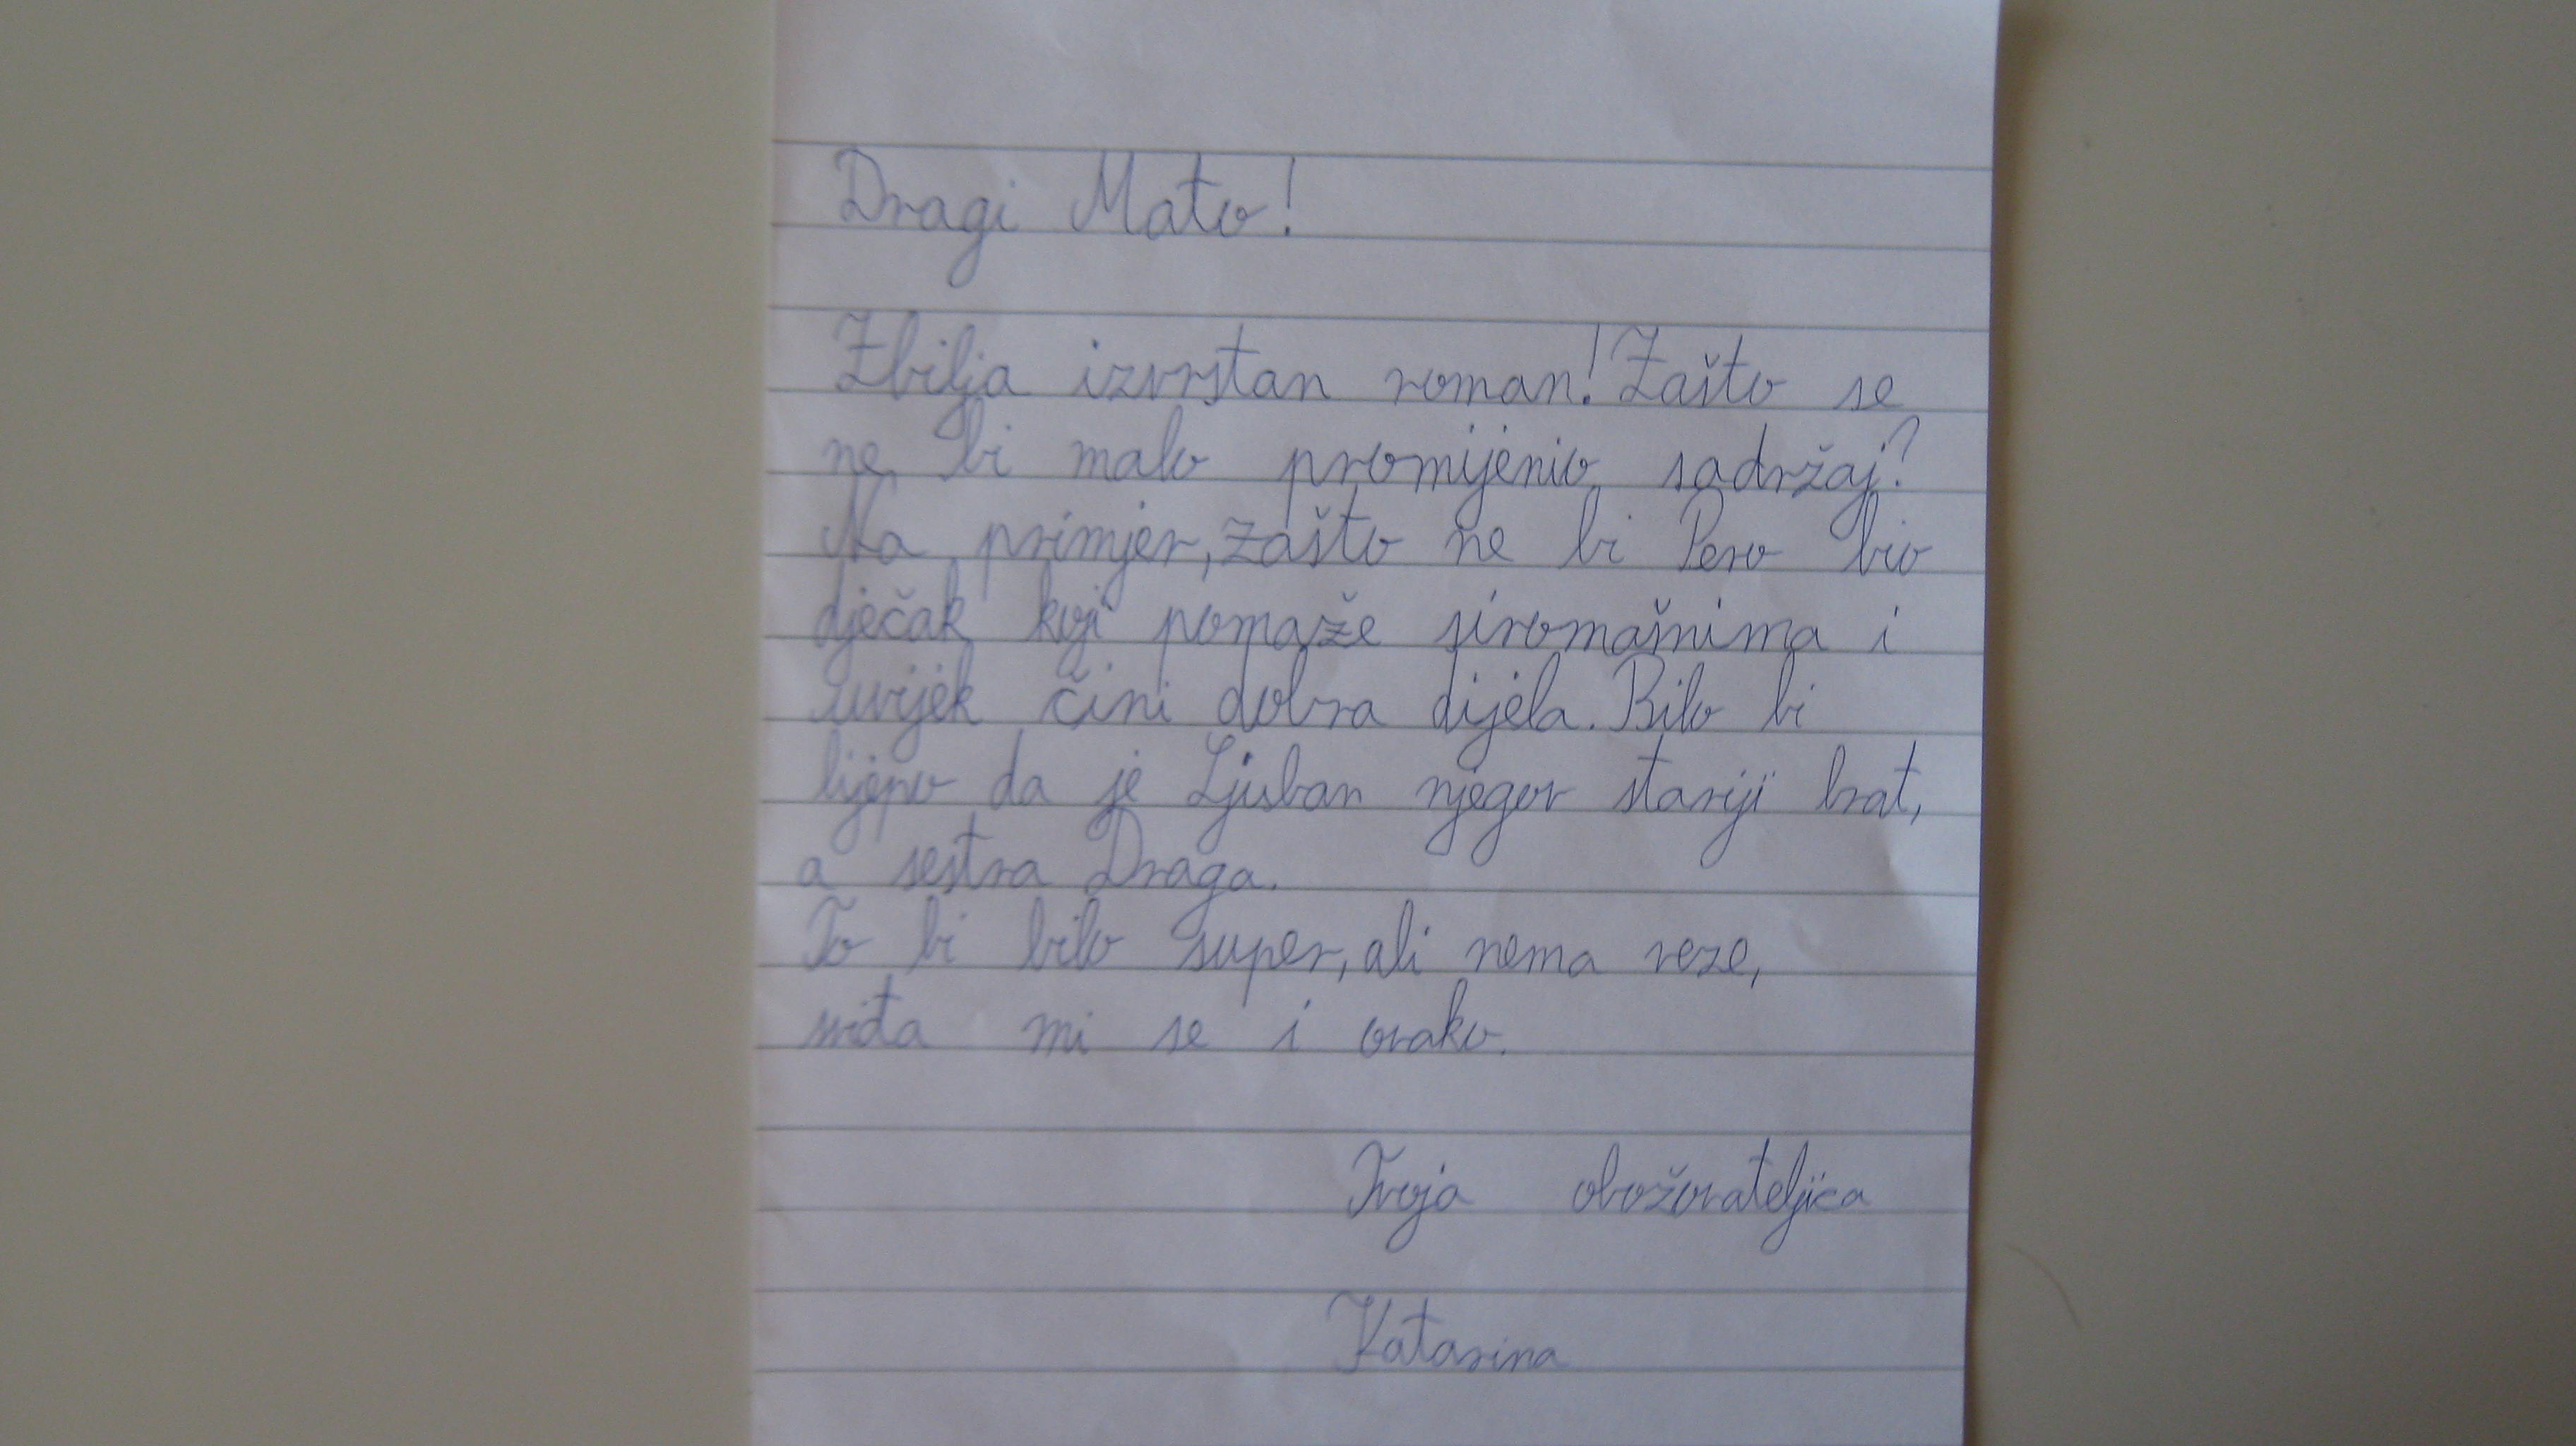 Dragi Mato!
Zbilja izvrstan roman! Zašto se
ne bi malo promijenio sadržaj?
Na primjer, zašto ne bi Pero bio
dječak koji pomaže siromašnima i
uvijek čini dobra dijela. Bilo bi
lijepo da je Ljuban njegov stariji brat,
a sestra Draga.
To bi bilo super, ali nema veze,
sviđa mi se i ovako.
Tvoja obožovateljica
Katarina